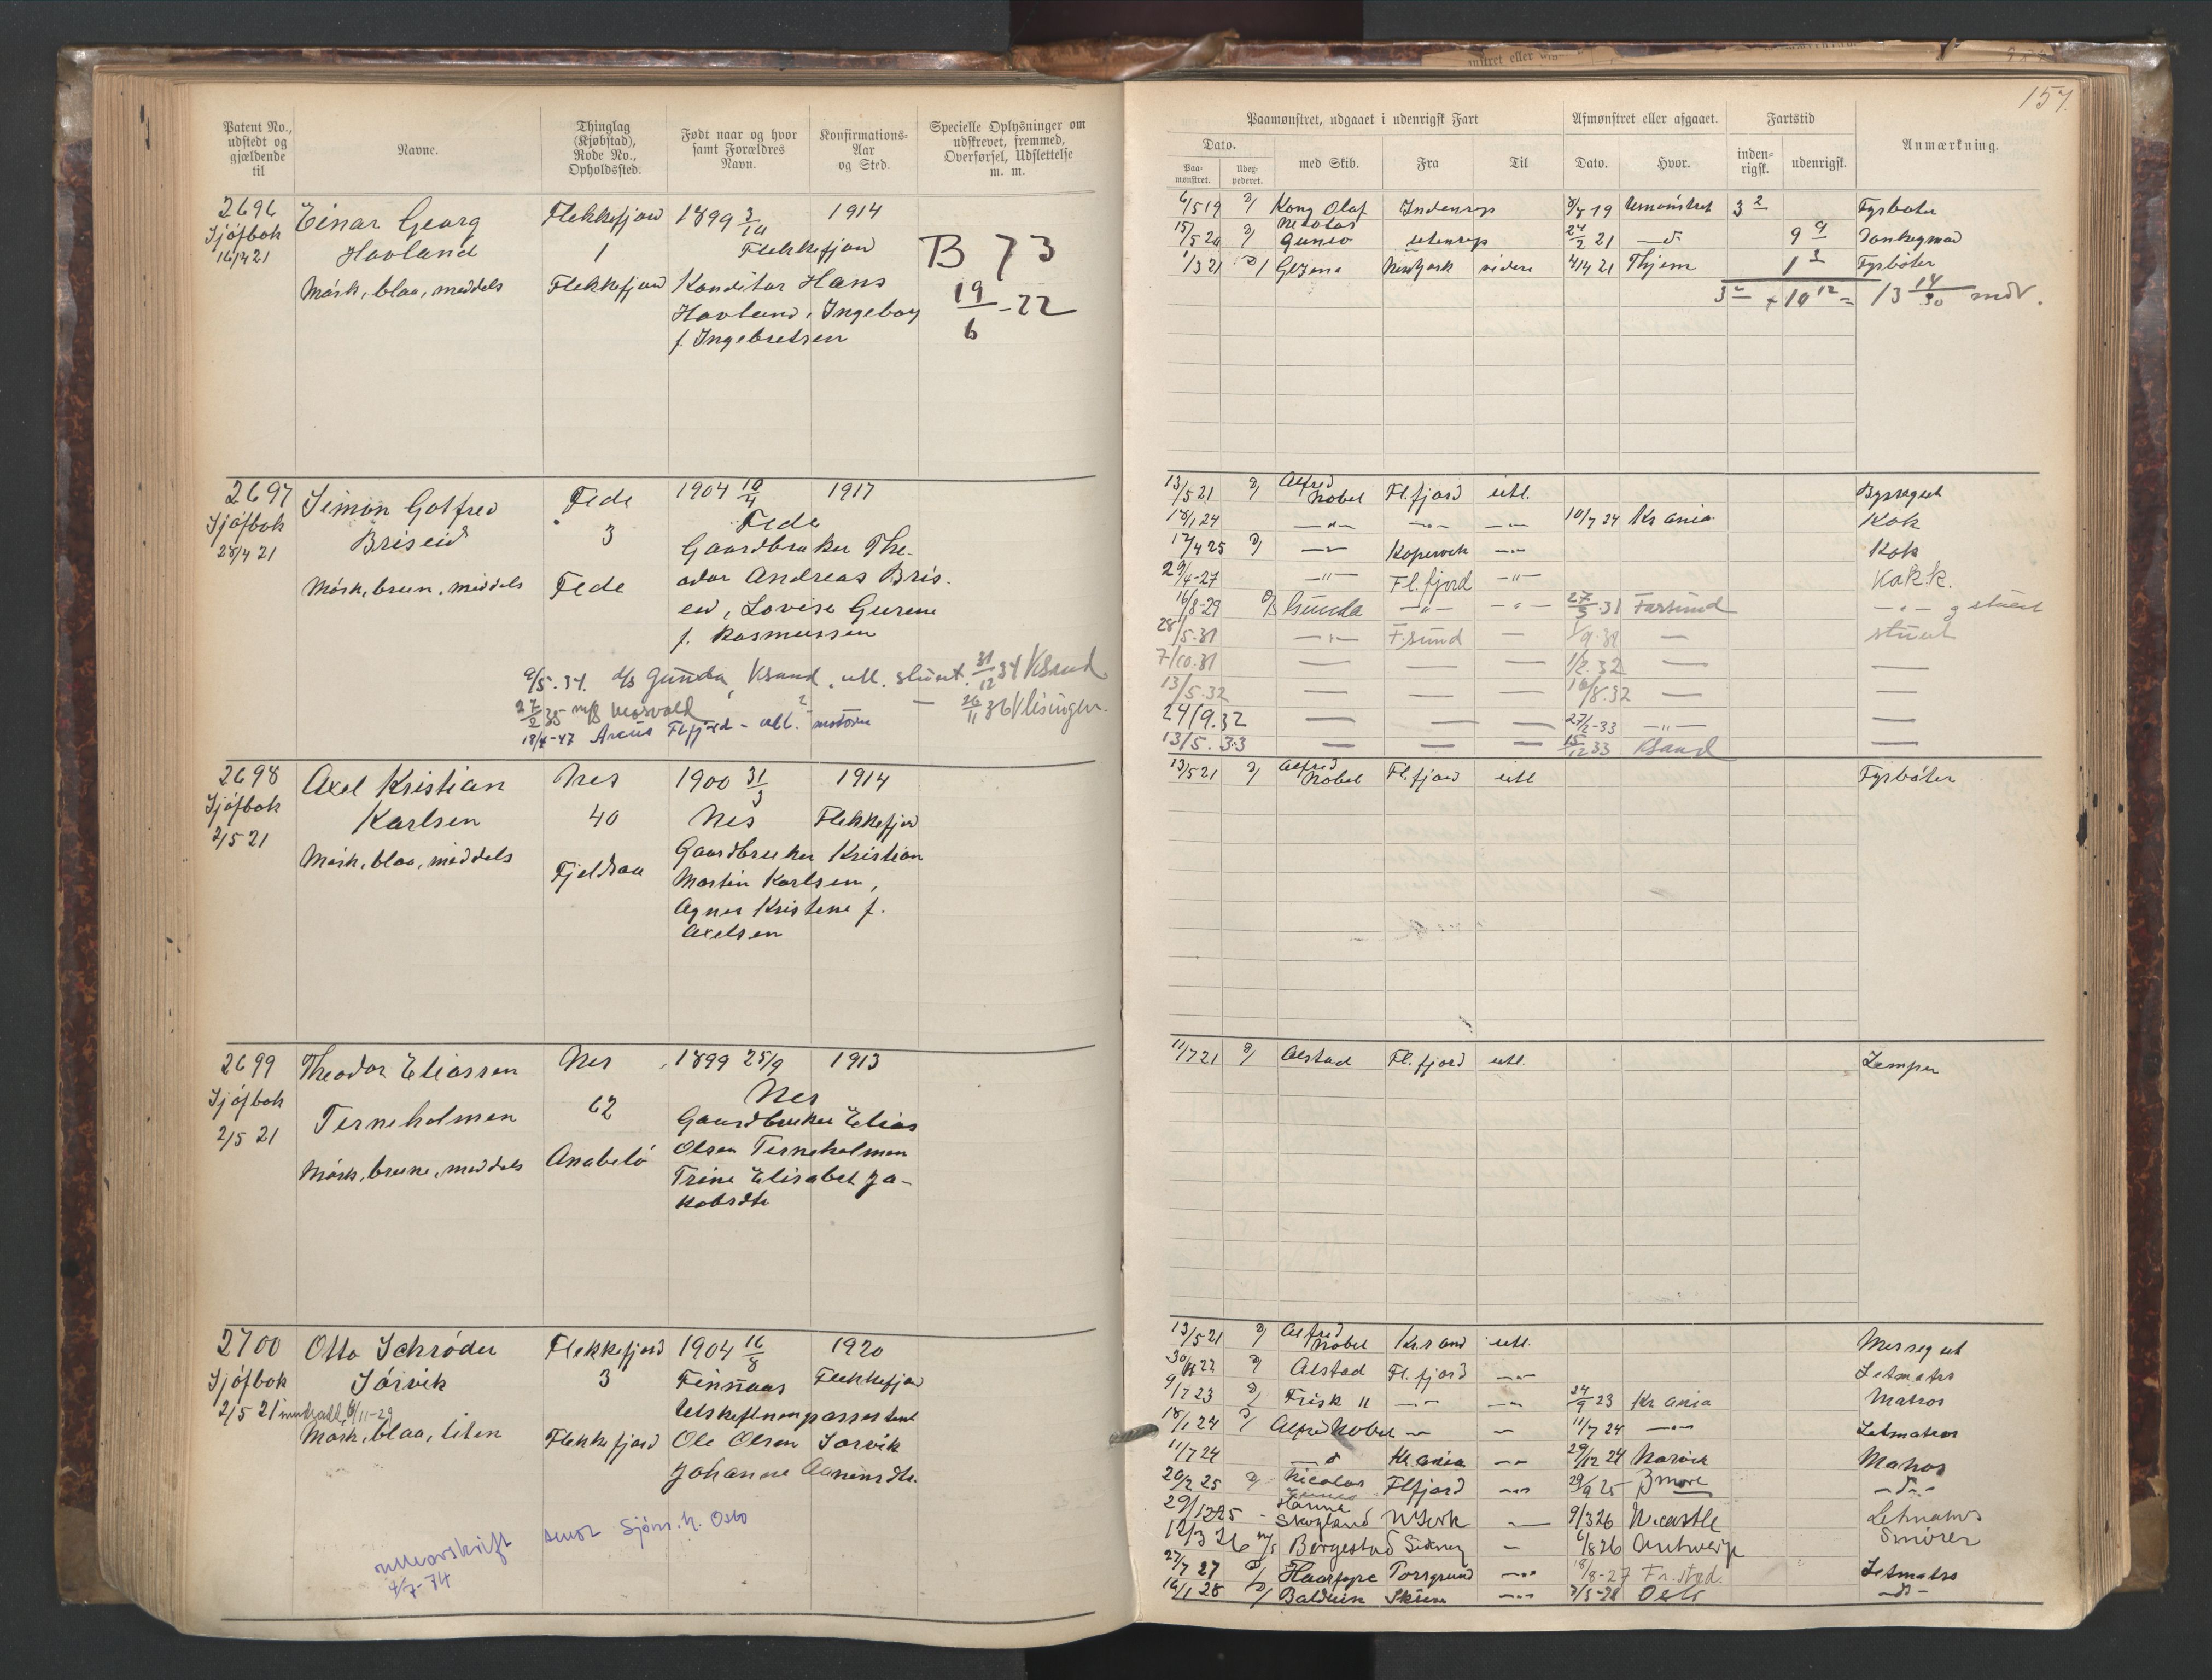 157.
Patent No., udstedt og gjældende til
Navne.
Thinglag (Kjøbstad), Rode No., Opholdssted.
Født naar og hvor samt Forældres Navn.
Konfirmations-Aar og Sted.
Specielle Oplysninger om udskrevet, fremmed, Overførsel, Udslettelse m. m.
Paamønstret, udgaaet i udenrigsk Fart
Afmønstret eller afgaaet.
Fartstid
Anmærkning.
Dato.
Paa-mønstret.
Udex-pederet.
med Skib.
Fra
Til
Dato.
Hvor.
inden-rigsk.
udenrigsk.
2696 Einar Georg Flekkefjord 1899 3/10 1914
Sjøfbok Havland 1 Flekkefjord B 73
16/4 21
Mørk, blaa, middels Flekkefjord Konditor Hans 19/6-22
Havland, Ingeborg
f. Ingebretsen
6/5 19 Kong Olaf Indenrigs 19 3 2 Fyrbøter
15/5 20 Nicolas Cuneo utenrigs 24/2 21 9 9 Donkeymand
1/3 21 Newyork videre 4/4 21 Thjem 1 3 Fyrbøter
3 2 + 10 12 = 13 14/30 mdr.
2697 Simon Gotfred Fede 1904 10/4 1917
Sjøfbok Briseid 3 Fede
28/4 21 Gaardbruker The-
Mørk, brun, middels Fede odor Andreas Bris-
eid, Lovise Gurine
f. Rasmussen
9/5.34. d/s Gunda, Ksand, utl. stuert. 31/12 34 Ksand
27/2 35 m/s Mosvold — 26/11 36 Vlisingen.
18/4-47 Arcus Flfjord - utl.
13/5 21 Alfred Nobel Fl.fjord utl. Byssegut
18/1 24 —"— —"— —"— 10/7 24 Kr ania Kok
17/4 25 —"— Kopervik —"— Kok
29/4-27 —"— Fl.fjord —"— Kokk.
16/8-29 Gunda —"— —"— 27/3.31 Farsund —"— g stuert
28/5.31 —"— F.sund — — stuert
7/10.31 — — — 1/2.32 — —
13/5.32 — — — 10/8.32 — —
24/9.32 — — — 27/2-33 —"— —
13/5.33 — — — 15/12 33 Ksand —
2698 Axel Kristian Nes 1900 31/3 1914
Sjøfbok Karlsen 40 Nes Flekkefjord
2/5 21 Gaardbruker Kristian
Mørk, blaa, middels Fjeldsaa Martin Karlsen,
Agnes Kristine f.
Axelsen
13/5 21 Alfred Nobel Fl.fjord utl Fyrbøter
2699 Theodor Eliassen Nes 1899 25/9 1913
Sjøfbok Terneholmen 62 Nes
2/5 21 Gaardbruker Elias
Mørk, brune, middels Anabelø Olsen Terneholmen
Trine Elisabet Ja-
kobsdtr
11/7 21 Alstad Fl.fjord utl. Lemper
2700 Otto Schrøder Flekkefjord 1904 16/8 1920
Sjøfbok Sørvik 3 Finnaas Flekkefjord
2/5 21 6/11-29 Utskiftningsassistent
Mørk, blaa, liten Flekkefjord Ole Olsen Sørvik
Johanne Aanensdtr.
rulleavskrift sendt Sjøm.k. Oslo
4/7-74
13/5 21 Alfred Nobel Kr.sand utl. Messegut
30/ 22 Alstad Fl.fjord —"— Letmatrs
9/7 23 Frisk II —"— —"— 24/9 23 Kr ania Matros
18/1 24 Alfred Nobel —"— — 11/7 24 —"— Letmatros
11/7 24 — d Kr.ania —"— 29/12 24 Narvik Matros
20/2 25 Nicolas Cuneo Flfjord —"— 29/9 25 Bmore —d—
29/12 25 Hanna Skogland N York — 9/3 26 N.castle Letmatros
12/3 26 Borgestad Sidney — 6/8 26 Antwerp Smører
27/7 27 Haarfagre Porsgrund —"— 18/8-27 Fr.stad. Letmatrs
16/1 28 Baldwin Skien —"— 3/5-28 Oslo —d—